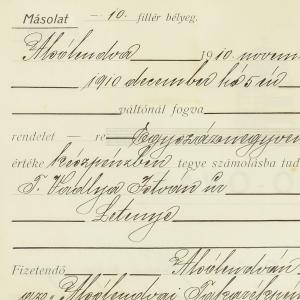 Másolat — 10. fillér bélyeg.
Alsólendva 1910. novem
1910 december hó 5 én
váltónál fogva
rendelet — re Egyszáznegyven
értéke készpénzben tegye számolásba tud
T. Vadlya István úr
Letenye
Fizetendő Alsólendván
az „Alsólendvai Takarékpén